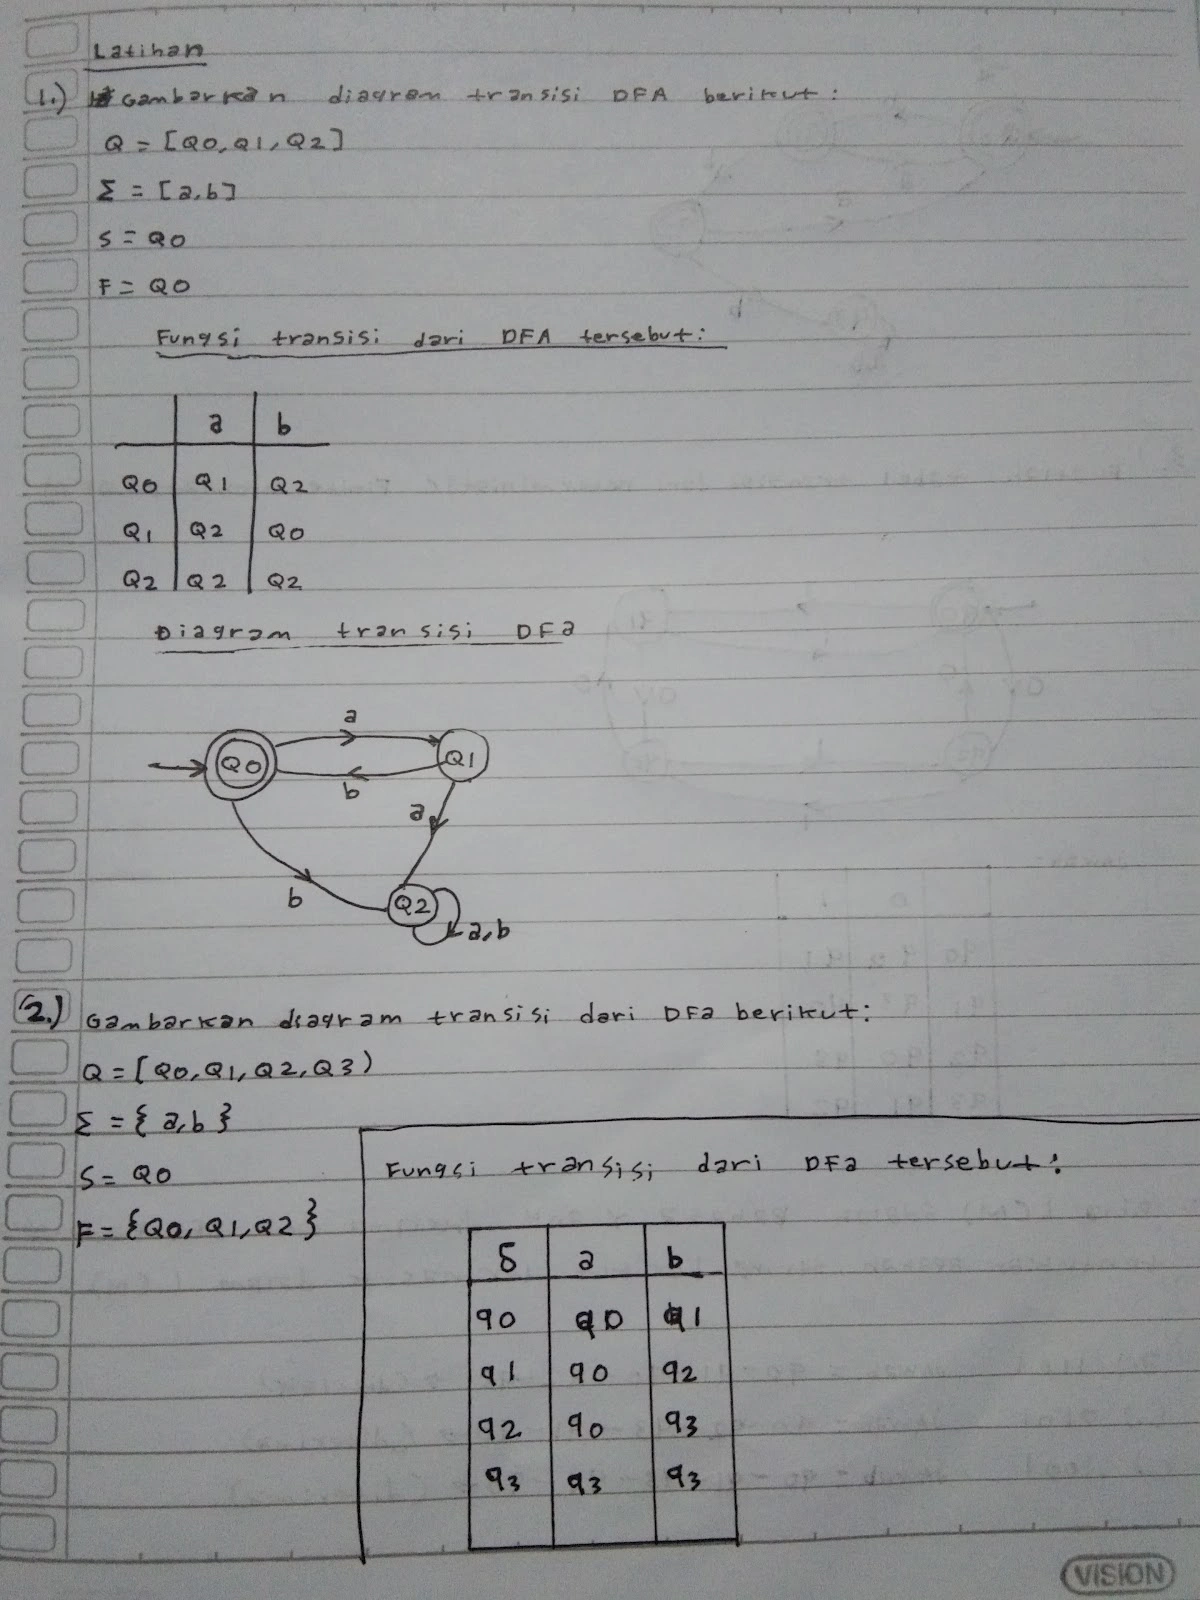 Latihan
1.) Gambarkan diagram transisi DFA berikut:
Q = [Q0, Q1, Q2]
Σ = [a,b]
S = Q0
F = Q0
Fungsi transisi dari DFA tersebut:
a b
Q0 Q1 Q2
Q1 Q2 Q0
Q2 Q2 Q2
Diagram transisi DFa
a
Q0 Q1
b
a
b
Q2
a,b
2.) Gambarkan diagram transisi dari DFa berikut:
Q = [Q0, Q1, Q2, Q3)
Σ = { a,b }
S = Q0
F = {Q0, Q1, Q2}
Fungsi transisi dari DFa tersebut:
δ a b
q0 q0 q1
q1 q0 q2
q2 q0 q3
q3 q3 q3
VISION